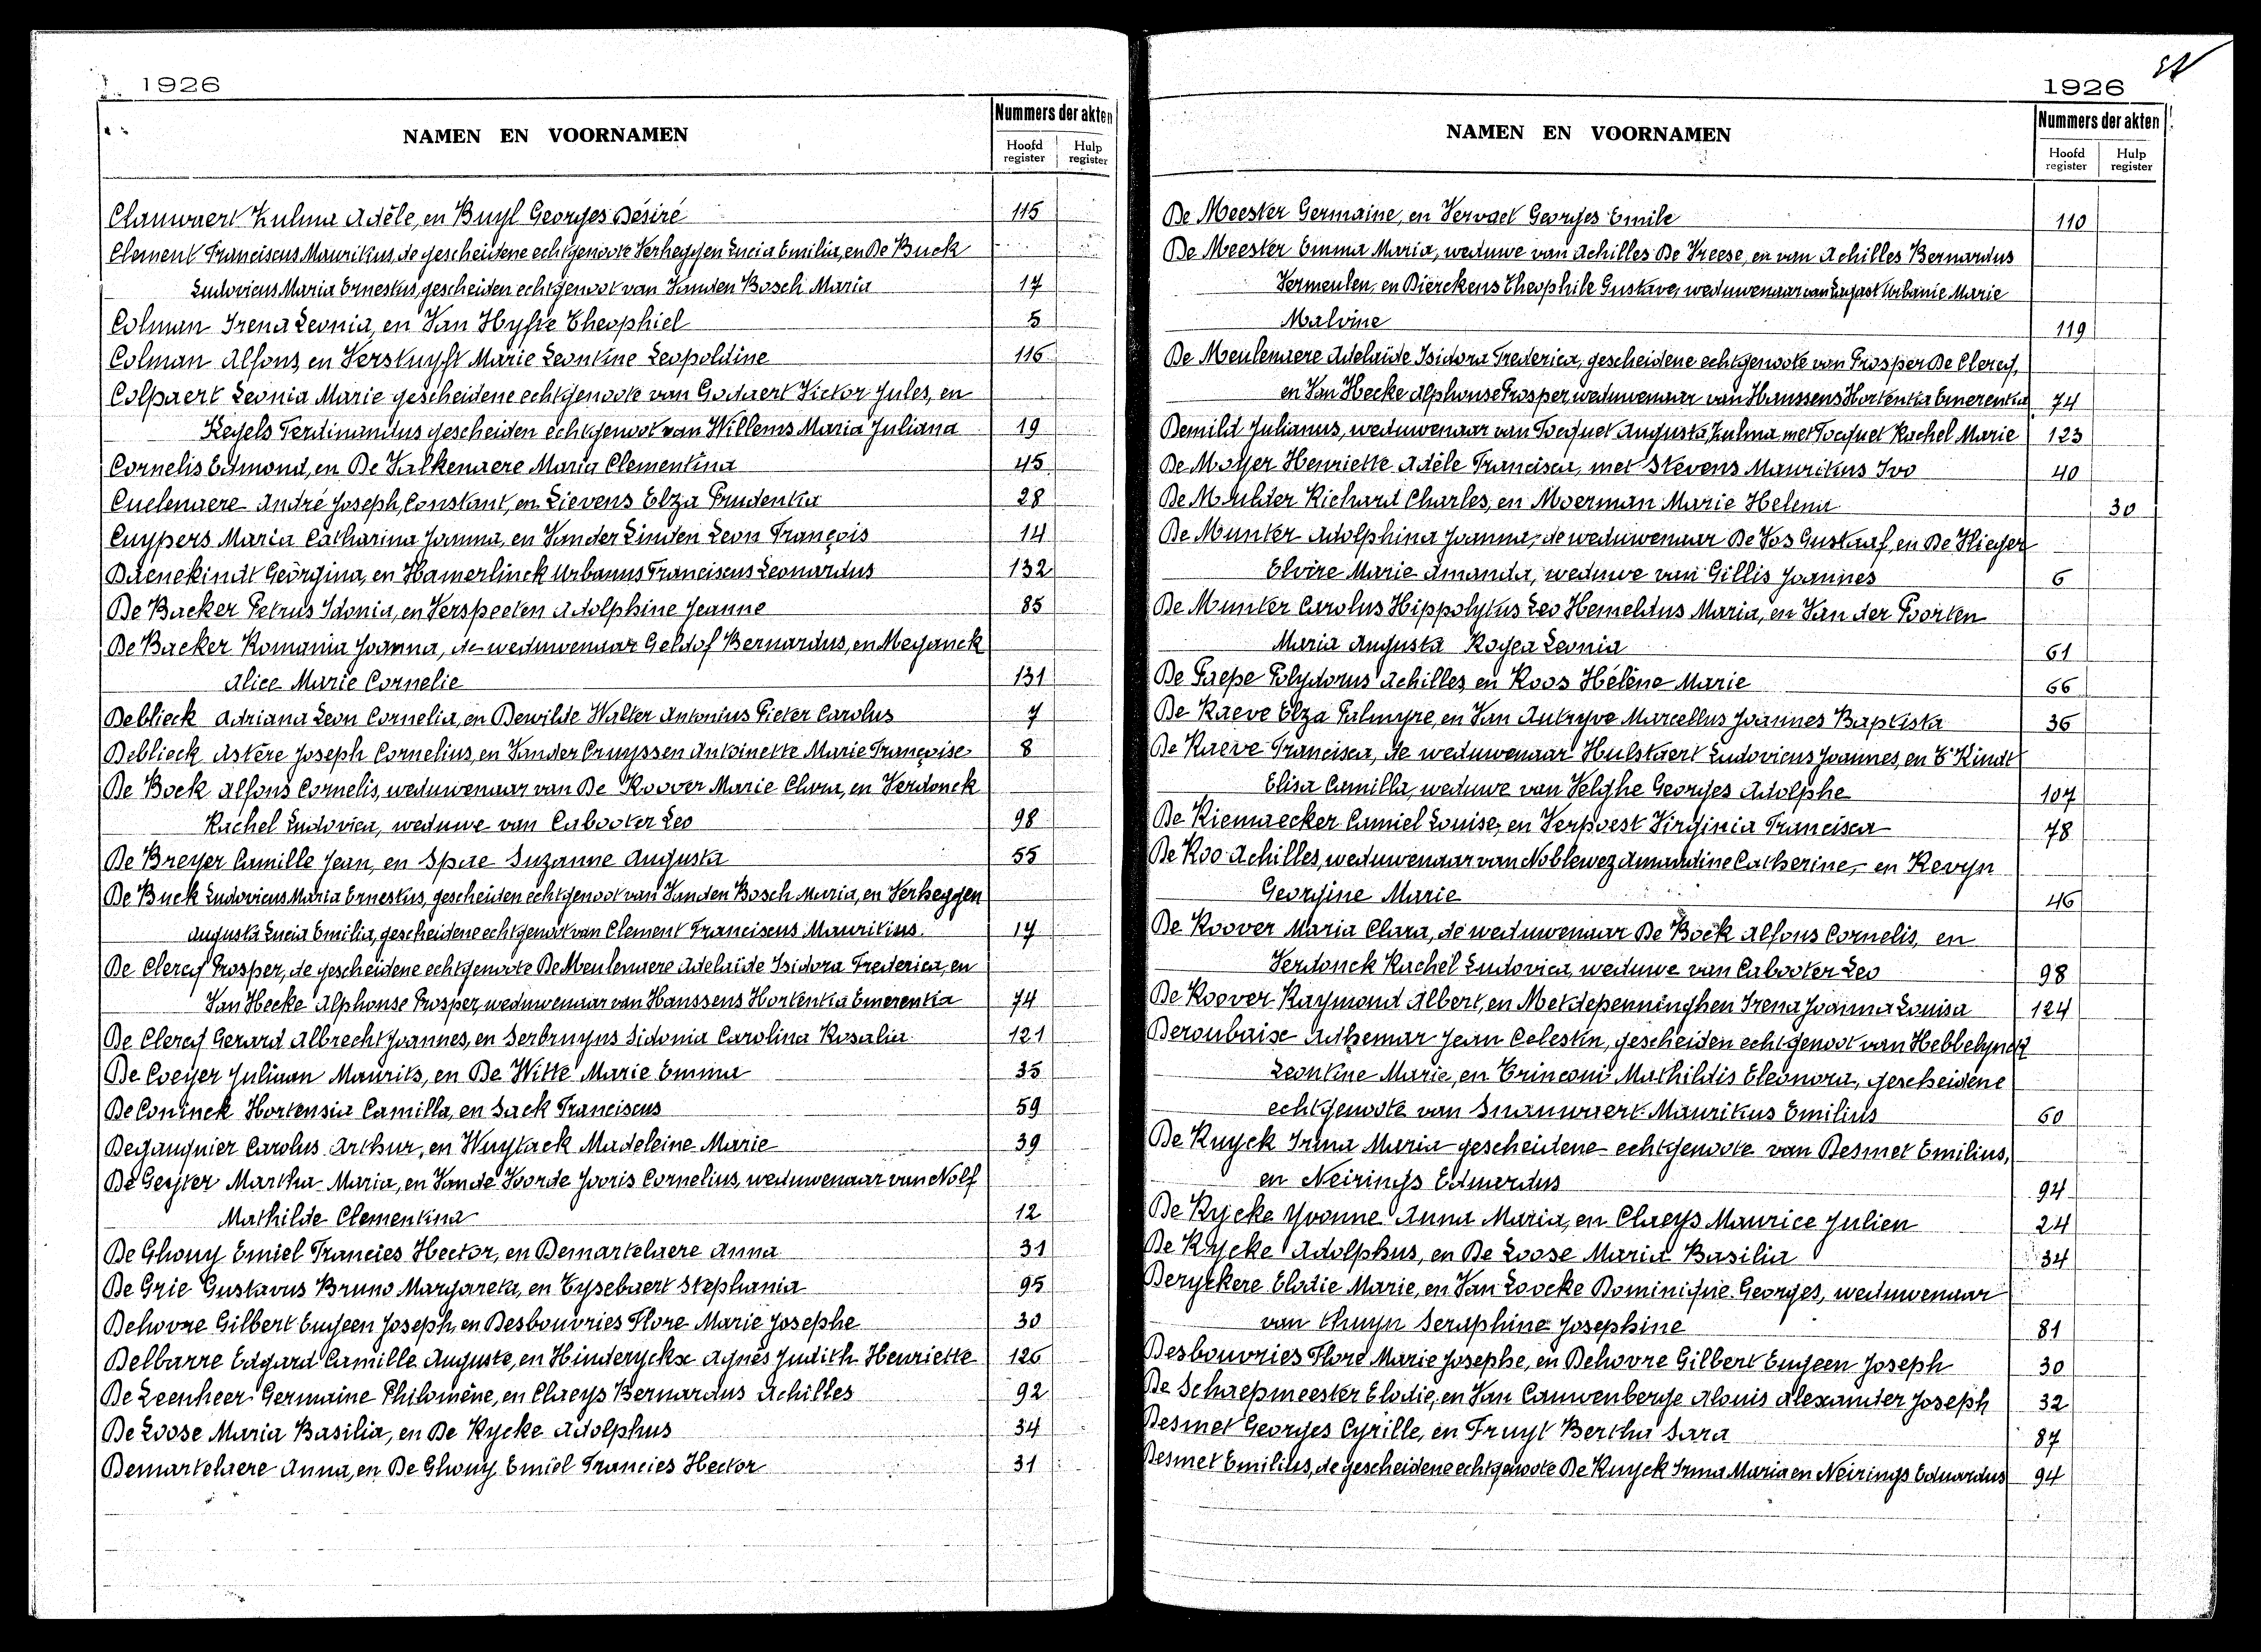 1926
NAMEN EN VOORNAMEN
Nummers der akten
Hoofd register
Hulp register
Clauwaert Zulma Adèle, en Buyl Georges Désiré 115
Clement Franciscus Mauritius, de gescheidene echtgenoote Verheggen Lucia Emilia, en De Buck
Ludovicus Maria Ernestus, gescheiden echtgenoot van Vanden Bosch Maria 17
Colman Irena Leonia, en Van Hyfte Theophiel 5
Colman Alfons, en Verstuyft Marie Leontine Leopoldine 116
Colpaert Leonia Marie gescheidene echtgenoote van Godaert Victor Jules, en
Kegels Ferdinandus gescheiden echtgenoot van Willems Maria Juliana 19
Cornelis Edmond, en De Valkenaere Maria Clementina 45
Cuelenaere André Joseph, Constant, en Lievens Elza Prudentia 28
Cuypers Maria Catharina Joanna, en Van der Linden Leon François 14
Daenekindt Georgina, en Hamerlinck Urbanus Franciscus Leonardus 132
De Backer Petrus Idonia, en Verspeeten Adolphine Jeanne 85
De Backer Romania Joanna, de weduwenaar Geldof Bernardus, en Meganck
Alice Marie Cornelie 131
Deblieck Adriana Leon Cornelia, en Dewilde Walter Antonius Pieter Carolus 7
Deblieck Astère Joseph Cornelius, en Vander Cruyssen Antoinette Marie Françoise 8
De Bock Alfons Cornelis, weduwenaar van De Roover Marie Clara, en Verdonck
Rachel Ludovica, weduwe van Cabooter Leo 98
De Breyer Camille Jean, en Spae Suzanne Augusta 55
De Buck Ludovicus Maria Ernestus, gescheiden echtgenoot van Vanden Bosch Maria, en Verheggen
Augusta Lucia Emilia, gescheidene echtgenoot van Clement Franciscus Mauritius. 17
De Clercq Prosper, de gescheidene echtgenoote De Meulenaere Adelaïde Isidora Frederica, en
Van Hecke Alphonse Prosper, weduwenaar van Hanssens Hortentia Emerentia 74
De Clercq Gerard Albrecht Joannes, en Serbruyns Sidonia Carolina Rosalia 121
De Coeyer Juliaan Maurits, en De Witte Marie Emma 35
De Coninck Hortensia Camilla, en Sack Franciscus 59
Degauquier Carolus Arthur, en Wuytack Madeleine Marie 39
De Geyter Martha Maria, en Van de Voorde Jooris Cornelius, weduwenaar van Nolf
Mathilde Clementina 12
De Ghouy Emiel Francies Hector, en Demartelaere Anna 31
De Grie Gustavus Bruno Margareta, en Tysebaert Stephania 95
Dehovre Gilbert Eugeen Joseph, en Desbouvries Flore Marie Josephe 30
Delbarre Edgard Camille Auguste, en Hinderyckx Agnès Judith Henriette 126
De Leenheer Germaine Philomène, en Claeys Bernardus Achilles 92
De Loose Maria Basilia, en De Rycke Adolphus 34
Demartelaere Anna, en De Ghouy Emiel Francies Hector 31
1926
NAMEN EN VOORNAMEN
Nummers der akten
Hoofd register
Hulp register
De Meester Germaine, en Vervaet Georges Emile 110
De Meester Emma Maria, weduwe van Achilles De Vreese, en van Achilles Bernardus
Vermeulen, en Dierckens Theophile Gustave, weduwenaar van Urbanie Marie
Malvine 119
De Meulenaere Adelaïde Isidora Frederica, gescheidene echtgenoote van Prosper De Clercq,
en Van Hecke Alphonse Prosper, weduwenaar van Hanssens Hortentia Emerentia 74
Demild Julianus, weduwenaar van Tocquet Augusta Zulma, met Tocquet Rachel Marie 123
De Moyer Henriette Adèle Francisca, met Stevens Mauritius Ivo 40
De Mulder Richard Charles, en Moerman Marie Helena 30
De Munter Adolphina Joanna, de weduwenaar De Vos Gustaaf, en De Vlieger
Elvire Marie Amanda, weduwe van Gillis Joannes 6
De Munter Carolus Hippolytus Leo Hemeldus Maria, en Van der Poorten
Maria Augusta Rogea Leonia 61
De Paepe Polydorus Achilles, en Roos Hélène Marie 66
De Raeve Elza Palmyre, en Van Autryve Marcellus Joannes Baptista 36
De Raeve Francisca, de weduwenaar Hulstaert Ludovicus Joannes, en T'Kindt
Elisa Camilla, weduwe van Velghe Georges Adolphe 107
De Riemaecker Camiel Louise, en Verpoest Virginia Francisca 78
De Roo Achilles, weduwenaar van Noblewez Amandine Catherine, en Revyn
Georgine Marie 46
De Roover Maria Clara, de weduwenaar De Bock Alfons Cornelis, en
Verdonck Rachel Ludovica, weduwe van Cabooter Leo 98
De Roover Raymond Albert, en Metdepenninghen Irena Joanna Louisa 124
Deroubaise Adhemar Jean Celestin, gescheiden echtgenoot van Hebbelynck
Leontine Marie, en Trinconi Mathildis Eleonora, gescheidene
echtgenoote van Snauwaert Mauritius Emilius 60
De Ruyck Irma Maria gescheidene echtgenoote van Desmet Emilius,
en Neirings Eduardus 94
De Rycke Yvonne Anna Maria, en Claeys Maurice Julien 24
De Rycke Adolphus, en De Loose Maria Basilia 34
Deryckere Elodie Marie, en Van Loocke Dominique Georges, weduwenaar
van Thuyn Seraphine Josephine 81
Desbouvries Flore Marie Josephe, en Dehovre Gilbert Eugeen Joseph 30
De Schaepmeester Elodie, en Van Cauwenberge Alouis Alexander Joseph 32
Desmet Georges Cyrille, en Fruyt Bertha Sara 87
Desmet Emilius, de gescheidene echtgenoote De Ruyck Irma Maria en Neirings Eduardus 94